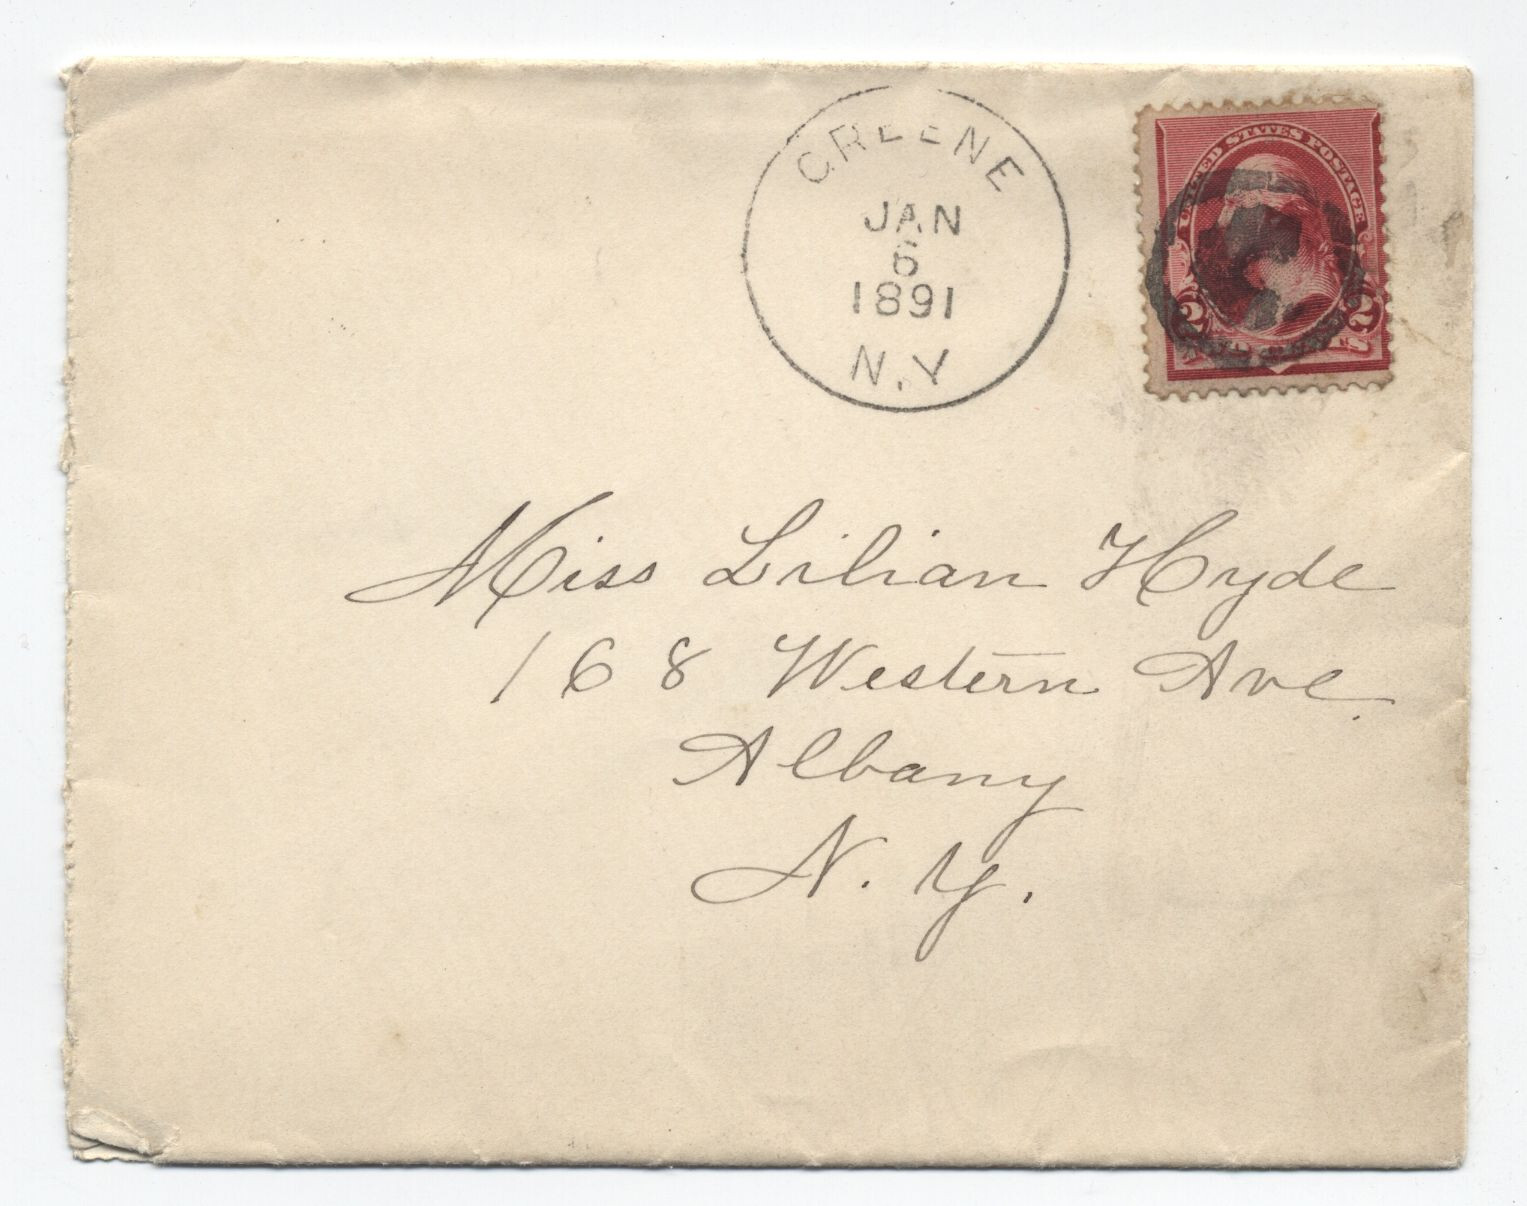 GREENE
JAN
6
1891
N.Y
UNITED STATES POSTAGE
2 2
Miss Lilian Hyde
168 Western Ave.
Albany
N. Y.